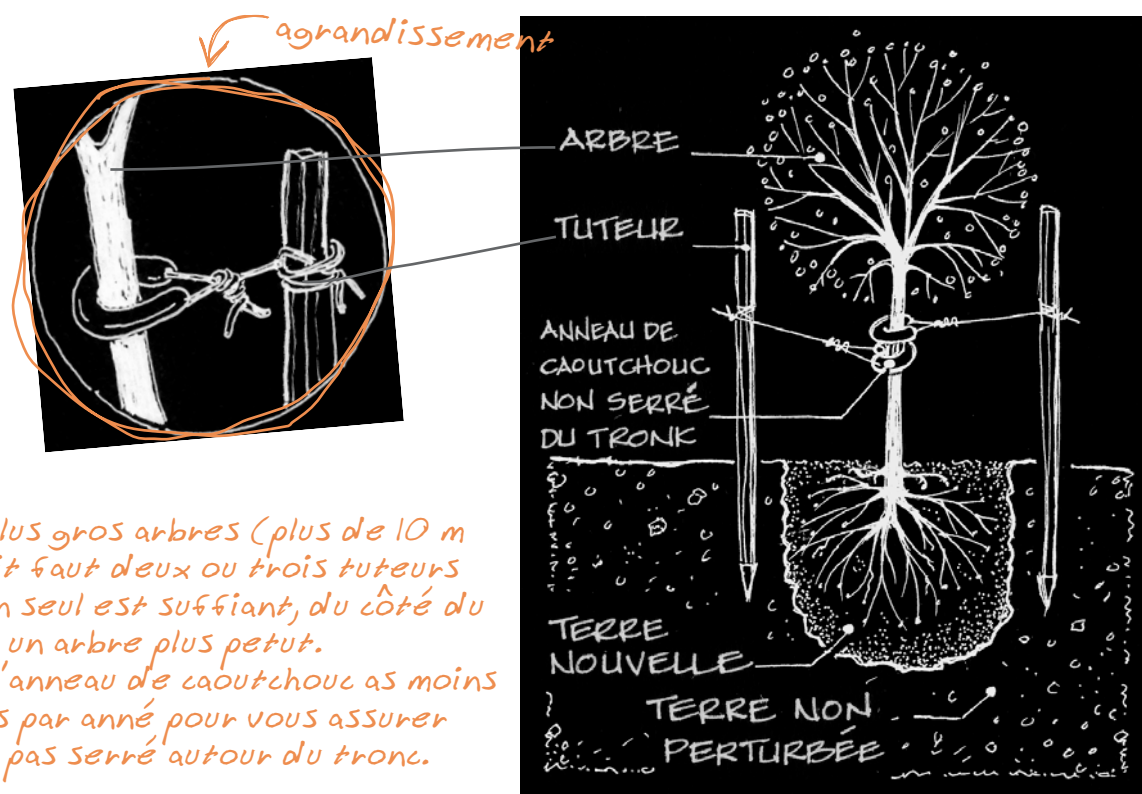 agrandissement
ARBRE
TUTEUR
ANNEAU DE
CAOUTCHOUC
NON SERRÉ
DU TRONK
TERRE
NOUVELLE
TERRE NON
PERTURBÉE
lus gros arbres (plus de 10 m
it faut deux ou trois tuteurs
n seul est suffiant, du côté du
un arbre plus petut.
'anneau de caoutchouc as moins
s par anné pour vous assurer
pas serré autour du tronc.